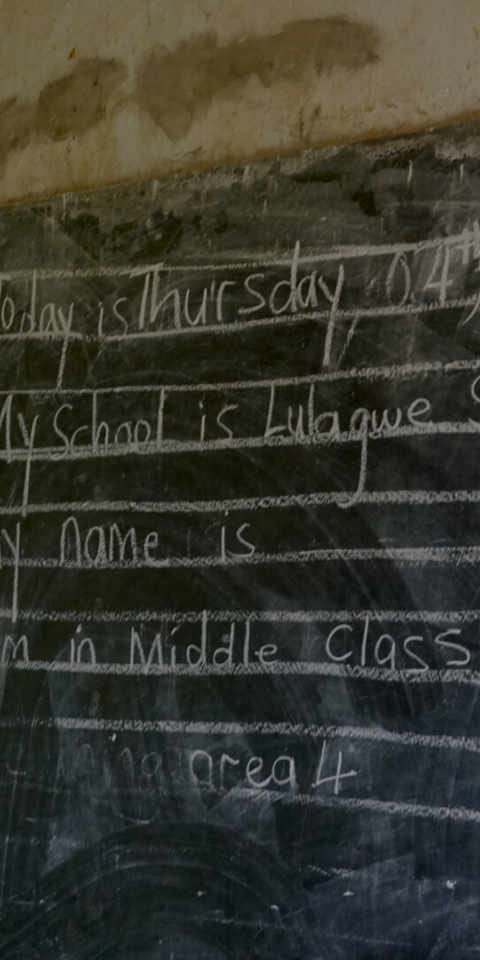 oday is Thursday 04th
My School is Lulagwe S
y name is
m in Middle Class
area 4